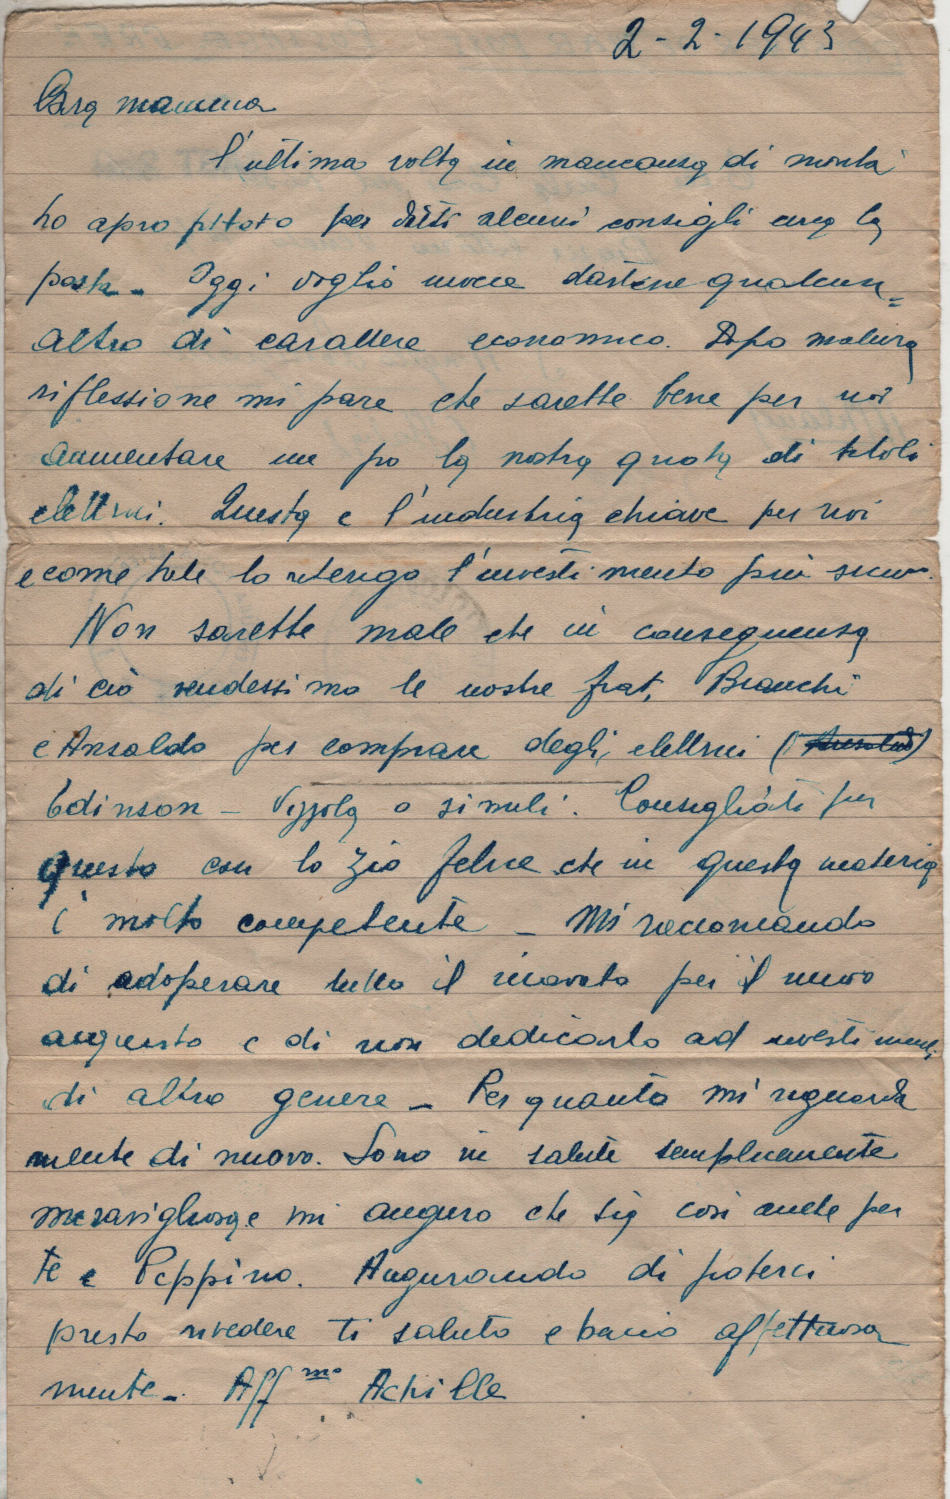 2-2-1943
Cara mamma
l'ultima volta in mancanza di novità
ho approfittato per darti alcuni consigli circa la
posta. Oggi voglio invece dartene qualcun=
altro di carattere economico. Dopo matura
riflessione mi pare che sarebbe bene per noi
aumentare un po la nostra quota di titoli
elettrici. Questa e l'industria chiave per noi
e come tale lo ritengo l'investimento più sicuro.
Non sarebbe male che in conseguenza
di ciò vendessimo le nostre fiat, Bianchi
e Ansaldo per comprare degli elettrici (Ansaldo)
Edinson - Vizzola o simili. Consigliati per
questo con lo zio Felice che in questa materia
è molto competente - Mi raccomando
di adoperare tutto il ricavato per il nuovo
acquisto e di non dedicarlo ad investimenti
di altro genere - Per quanto mi riguarda
niente di nuovo. Sono in salute semplicemente
meravigliosa e mi auguro che sia così anche per
te e Peppino. Augurando di poterci
presto rivedere ti saluto e bacio affettuosa
mente - Aff.mo Achille